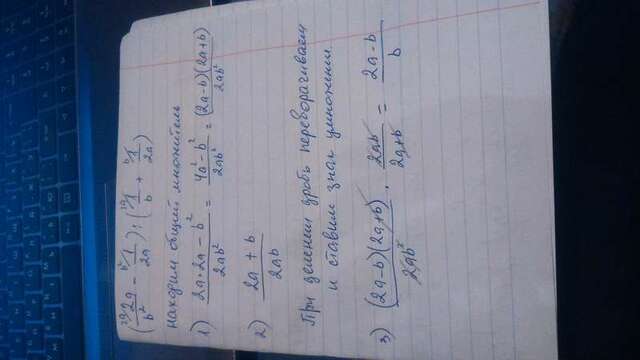 (2a/b² - 1/2a) : (1/b + 1/2a)
находим общий множитель
1) 2a·2a - b²/2ab² = 4a² - b²/2ab² = (2a-b)(2a+b)/2ab²
2) 2a + b/2ab
При делении дробь переворачиваем
и ставим знак умножения.
3) (2a-b)(2a+b)/2ab² · 2ab/2a+b = 2a-b/b